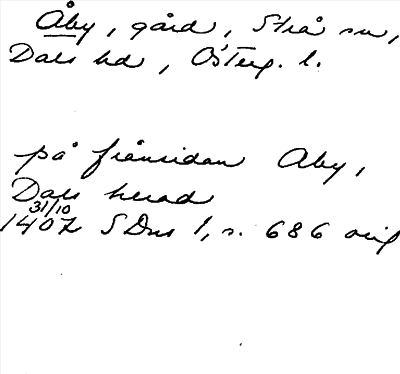 Åby, gård, Strå sn,
Dals hd, Österg. l.
på frånsidan Aby,
Dals herad
31/10
1407 SDns 1, s. 686 orig